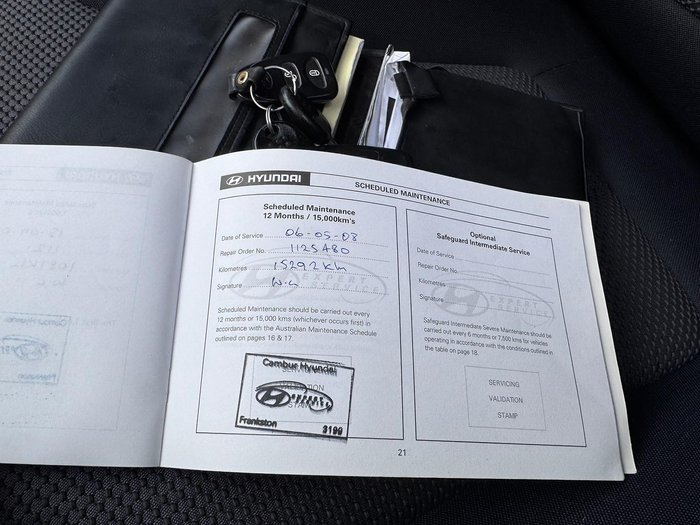 HYUNDAI
SCHEDULED MAINTENANCE
Scheduled Maintenance
12 Months / 15,000km's
Date of Service 06-05-08
Repair Order No. 1125480
Kilometres 15292 Km
Signature
EXPERT
SERVICE
Scheduled Maintenance should be carried out every
12 months or 15,000 kms (whichever occurs first) in
accordance with the Australian Maintenance Schedule
outlined on pages 16 & 17.
Cambur Hyundai
SERVICING
VALIDATION
STAMP
Frankston 3199
Optional
Safeguard Intermediate Service
Date of Service
Repair Order No.
Kilometres
Signature
EXPERT
SERVICE
Safeguard Intermediate Severe Maintenance should be
carried out every 6 months or 7,500 kms for vehicles
operating in accordance with the conditions outlined in
the table on page 18.
SERVICING
VALIDATION
STAMP
21